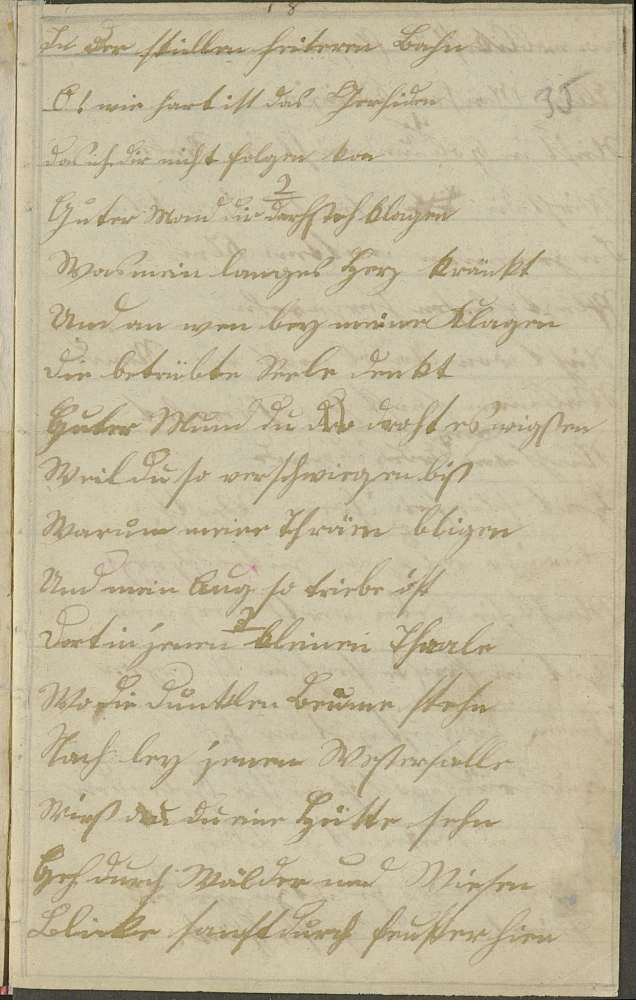 In der stillen heiteren Bahn
O! wie hart ist das
35
das ich dir nicht folgen kan
2
Guter Mond dir darf ich klagen
Was mein banges Herz kränkt
Und an wen bey meiner Klagen
die betrübte Seele denkt
Guter Mond du darfst es wißen
Weil du so verschwiegen bist
Warum meine Thränen
Und mein Aug so triebe ist
3
Dort in jenen kleinen Thaale
Wo die dunklen Beume stehn
Nach bey jenen Waßerfalle
Wirst du eine Hütte sehn
Geh durch Wälder und Wiesen
Blicke sanft durch Fenster hien